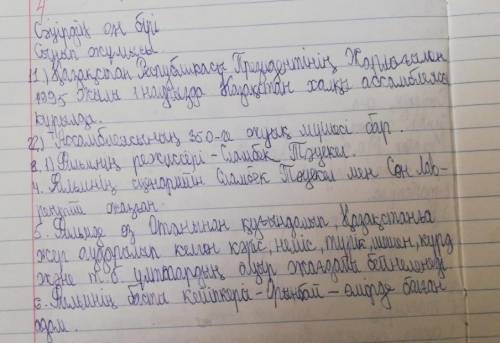 Сәуірдің он бірі
Сынып жұмысы
1) Қазақстан Республикасы Президентінің Жарлығымен
1995 жылы 1 наурызда Қазақстан халқы ассамблеясы
құрылды.
2) Ассамблеясының 350-ге жуық мүшесі бар.
3. 1) Фильмнің режиссері - Сламбек Тәуекел.
4. Фильмнің сценарийін Сламбек Тәуекел мен Сон Лав-
рентий жазған.
5. Фильмде өз Отанынан қуғындалып, Қазақстанға
жер аударылып келген кәріс, неміс, түрік, шешен, күрд
және т.б ұлттардың ауыр жағдайы бейнеленеді
6. Фильмнің басты кейіпкері - Орынбай - өмірде болған
адам.